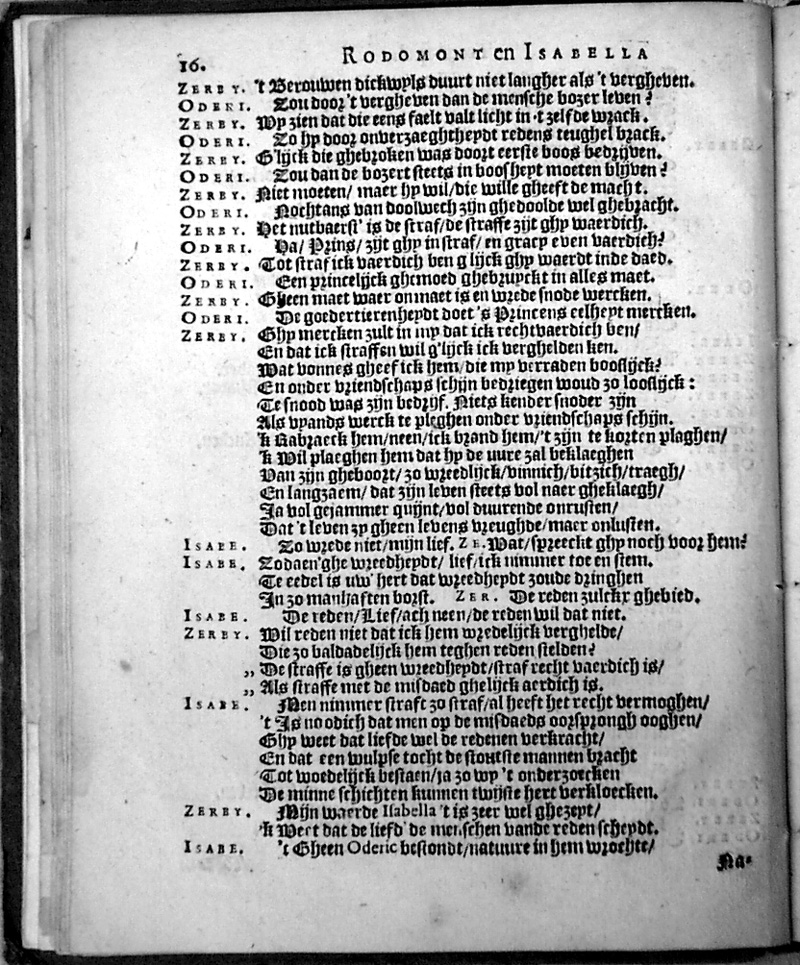 16. RODOMONT en ISABELLA
ZERBY. 't Berouwen dickwyls duurt niet langher als 't vergheven.
ODERI. Zou door 't vergheven dan de mensche bozer leven?
ZERBY. Wy zien dat die eens faelt valt licht in 't zelfde wrack.
ODERI. Zo hy door onverzaeghtheydt redens teughel brack.
ZERBY. G'lijck die ghebroken was doort eerste boos bedrijven.
ODERI. Zou dan de bozert steets in boosheyt moeten blijven?
ZERBY. Niet moeten/ maer hy wil/ die wille gheeft de macht.
ODERI. Nochtans van doolwech zijn ghedoolde wel ghebracht.
ZERBY. Het nutbaerst' is de straf/ de straffe zijt ghy waerdich.
ODERI. Ha/ Prins/ zijt ghy in straf/ en graey even vaerdich?
ZERBY. Tot straf ick vaerdich ben g lijck ghy waerdt inde daed.
ODERI. Een princelijck ghemoed ghebruyckt in alles maet.
ZERBY. Gheen maet waer onmaet is en wrede snode wercken.
ODERI. De goedertierenheydt doet 's Princens eelheyt mercken.
ZERBY. Ghy mercken zult in my dat ick rechtvaerdich ben/
En dat ick straffen wil g'lijck ick verghelden ken.
Wat vonnes gheef ick hem/ die my verraden booslijck?
En onder vriendschaps schijn bedriegen woud zo looslijck:
Te snood was zijn bedrijf. Niets kender snoder zijn
Als vyands werck te pleghen onder vriendschaps schijn.
'k Rabraeck hem/ neen/ ick brand hem/ 't zijn te korten plaghen/
'k Wil plaeghen hem dat hy de uure zal beklaeghen
Van zijn gheboort/ zo wreedlijck/ vinnich/ bitzich/ traegh/
En langzaem/ dat zijn leven steets vol naer gheklaegh/
Ja vol gejammer quijnt/ vol duurende onrusten/
Dat 't leven zy gheen levens vreughde/ maer onlusten.
ISABE. Zo wrede niet/ mijn lief. ZE. Wat/ spreeckt ghy noch voor hem?
ISABE. Zodaen'ghe wreedheydt/ lief/ ick nimmer toe en stem.
Te eedel is uw' hert dat wreedheydt zoude dringhen
In zo manhaften borst. ZER. De reden zulckx ghebied.
ISABE. De reden/ Lief/ ach neen/ de reden wil dat niet.
ZERBY. Wil reden niet dat ick hem wredelijck verghelde/
Die zo baldadelijck hem teghen reden stelden?
„ De straffe is gheen wreedheydt/ straf recht vaerdich is/
„ Als straffe met de misdaed ghelijck aerdich is.
ISABE. Men nimmer straft zo straf/ al heeft het recht vermoghen/
't Is noodich dat men op de misdaeds oorsprongh ooghen/
Ghy weet dat liefde wel de redenen verkracht/
En dat een wulpse tocht de stoutste mannen bracht
Tot woedelijck bestaen/ ja zo wy 't onderzoecken
De minne schichten kunnen twijste hert verkloecken.
ZERBY. Mijn waerde Isabella 't is zeer wel ghezeyt/
'k Weet dat de liefd' de menschen vande reden scheydt.
ISABE. 't Gheen Oderic bestondt/ natuure in hem wrochte/
Na-